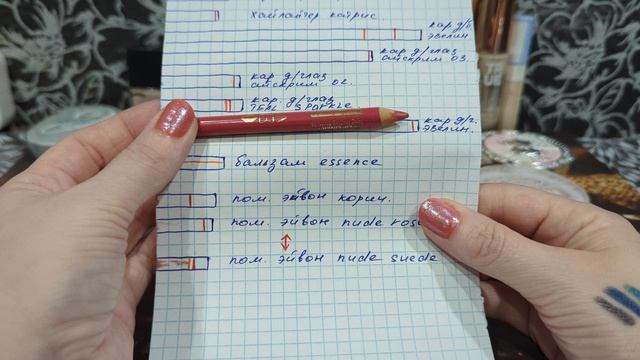 хайлайтер кайрис.
кар д/г
эвелин.
кар д/глаз
айскрим 03.
кар д/глаз
айскрим 02.
кар. д/глаз
TEAL SPARKLE
кар д/г.
эвелин.
бальзам essence
пом. эйвон корич.
пом. эйвон nude rose
пом. эйвон nude suede